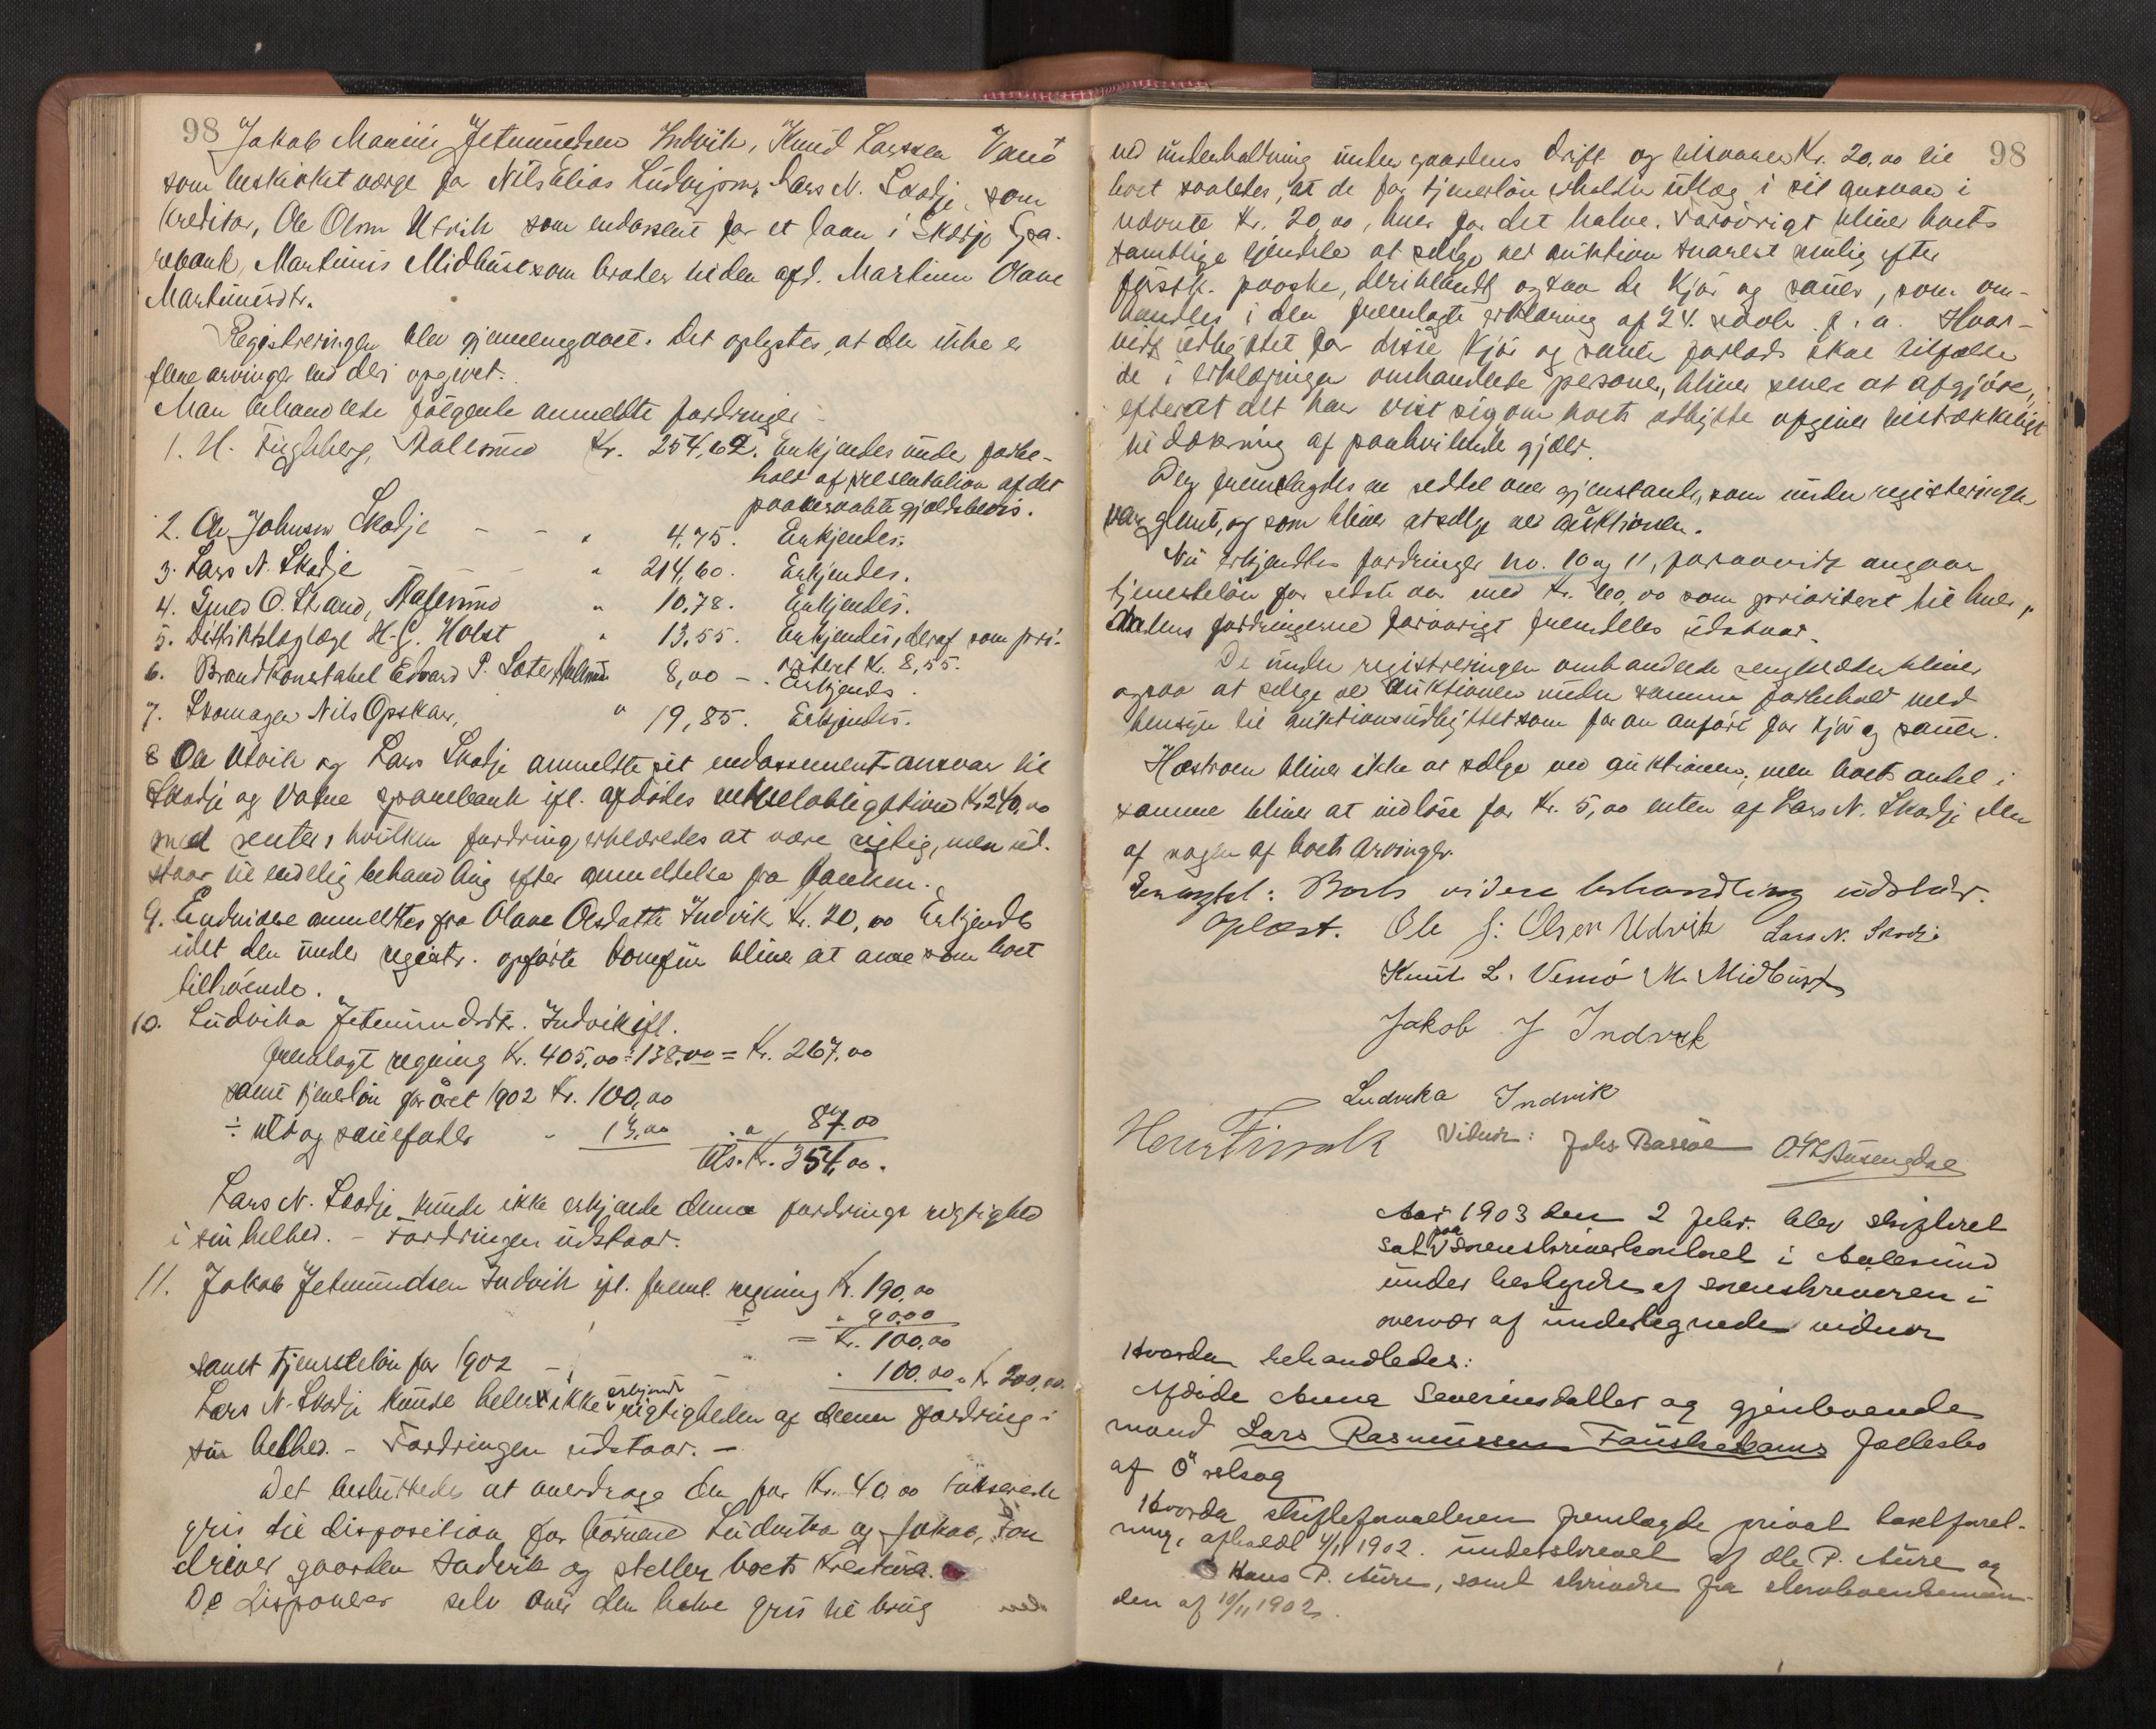 98 Jakob Marius Jetmundsen Indvik, Knud Larssen Vemö
som beskikket værge for Nils Elias Ludvigsen, Lars N. Skodje som
kreditor, Ole Olsen Utvik som endossent for et laan i Skodje Spa-
rebank, Martinus Midbust som broder til den afd. Martine Olave
Martinusdtr.
Registreringen blev gjennemgaaet. Det oplystes, at der ikke er
flere arvinger end der opgivet.
Man behandlede følgende anmeldte fordringer:
1. H. Fuglsberg, Aalesund Kr. 254,62. Erkjendes under forbe-
hold af presentation af det
paaberaabte gjældsbevis.
2. Ole Johnsen Skodje - - " 4,75. Erkjendes.
3. Lars N. Skodje - - " 214,60. Erkjendes.
4. Smed O. Strand, Aalesund " 10,78. Erkjendes.
5. Distriktslæge H. G. Holst " 13,55. Erkjendes, deraf som pri-
oriteret Kr. 8,55.
6. Brandkonstabel Edvard P. Sæter, Aalesund 8,00 - Erkjendes.
7. Skomager Nils Opskar, " 19,85. Erkjendes.
8 Ole Utvik og Lars Skodje anmeldte sit endossementsansvar til
Skodje og Vatne sparebank ifl. afdødes vekselobligation Kr 240,00
med renter, hvilken fordring erklæredes at være rigtig, men ud-
staar til endelig behandling efter anmeldelse fra banken.
9. Endvidere anmeldtes fra Olave Olsdatter Indvik Kr. 20,00 Erkjendes
idet den under registr. opførte komfur bliver at anse som boet
tilhørende.
10. Ludvika Jetmundsdtr. Indvik ifl.
fremlagt regning Kr. 405,00 ÷ 138,00 = Kr. 267,00
samt tjenerløn for året 1902 Kr. 100,00
÷ uld og sauefoder " 13,00 " 87.00
Tils. Kr. 354,00.
Lars N. Skodje kunde ikke erkjende denne fordrings rigtighed
i sin helhed. - Fordringen udstaar.
11. Jakob Jetmundsen Indvik ifl. freml. regning Kr. 190,00
÷ " 90.00
= Kr. 100,00
samt tjenesteløn for 1902 - " 100.00 = Kr 200,00.
Lars N. Skodje kunde heller ikke erkjende rigtigheden af denne fordring i
sin helhed. - Fordringen udstaar. -
Det besluttedes at overdrage den for Kr. 40,00 takserede
gris til disposition for børnene Ludvika og Jakob, som
driver gaarden Indvik og steller boets kreatura.
De disponerer selv over den halve gris til brug ved
98
ved underholdning under gaardens drift og tilsvarer Kr. 20,00 til
boet saaledes, at de for tjenerløn erholder udlæg i sit ansvar i
nævnte Kr. 20,00, hver for det halve. Forøvrigt bliver boets
samtlige eiendele at sælge ved auktion snarest mulig efter
førstk. paaske, deriblandt ogsaa de kjør og sauer, som om-
handles i den fremlagte erklæring af 24. novbr. f. a. Hvor-
vidt udbyttet for disse kjør og sauer forlods skal tilfalde
de i erklæringen omhandlede personer, bliver senere at afgjøre,
efterat det har vist sig om boets udbytte opgiver tilstrækkeligt
til dækning af paahvilende gjæld.
Der fremlagdes en seddel over gjenstande, som under registeringen
var glemt, og som bliver at sælge ved auktionen.
Nu erkjendtes fordringer no. 10 og 11, forsaavidt angaar
tjenesteløn for sidste aar med Kr. 100,00 som prioriteret til hver,
medens fordringerne forøvrigt fremdeles udstaar.
De under registreringen omhandlede sengklæder bliver
ogsaa at sælge ved auktionen under samme forbehold med
hensyn til auktionsudbyttet som foran anført for kjør og sauer.
Hestroen bliver ikke at sælge ved auktionen, men boets andel i
samme bliver at indløse for Kr. 5,00 enten af Lars N. Skodje eller
af nogen af boets arvinger.
Boets videre behandling udstaar.
Oplæst. Ole J: Olsen Udvik Lars N. Skodje
Knut L. Vemö M. Midbust
Jakob J Indvik
Ludvika Indvik
Vidner: Johs Bassøe
Aar 1903 den 2 febr. blev skifteret
sat paa sorenskriverkontoret i Aalesund
under bestyrelse af sorenskriveren i
overvær af undertegnede vidner
Hvorda behandledes:
Afdøde Anna Severinsdatter og gjenlevende
mand Lars Rasmussen Fauskehams fællesbo
af Ørskog
Hvorda skifteforvalteren fremlagde privat taxtforret-
ning, afholdt 4/11 1902. underskrevet af Ole P. Aure og
Hans P. Aure, samt skrivelse fra
den af 10/11 1902.